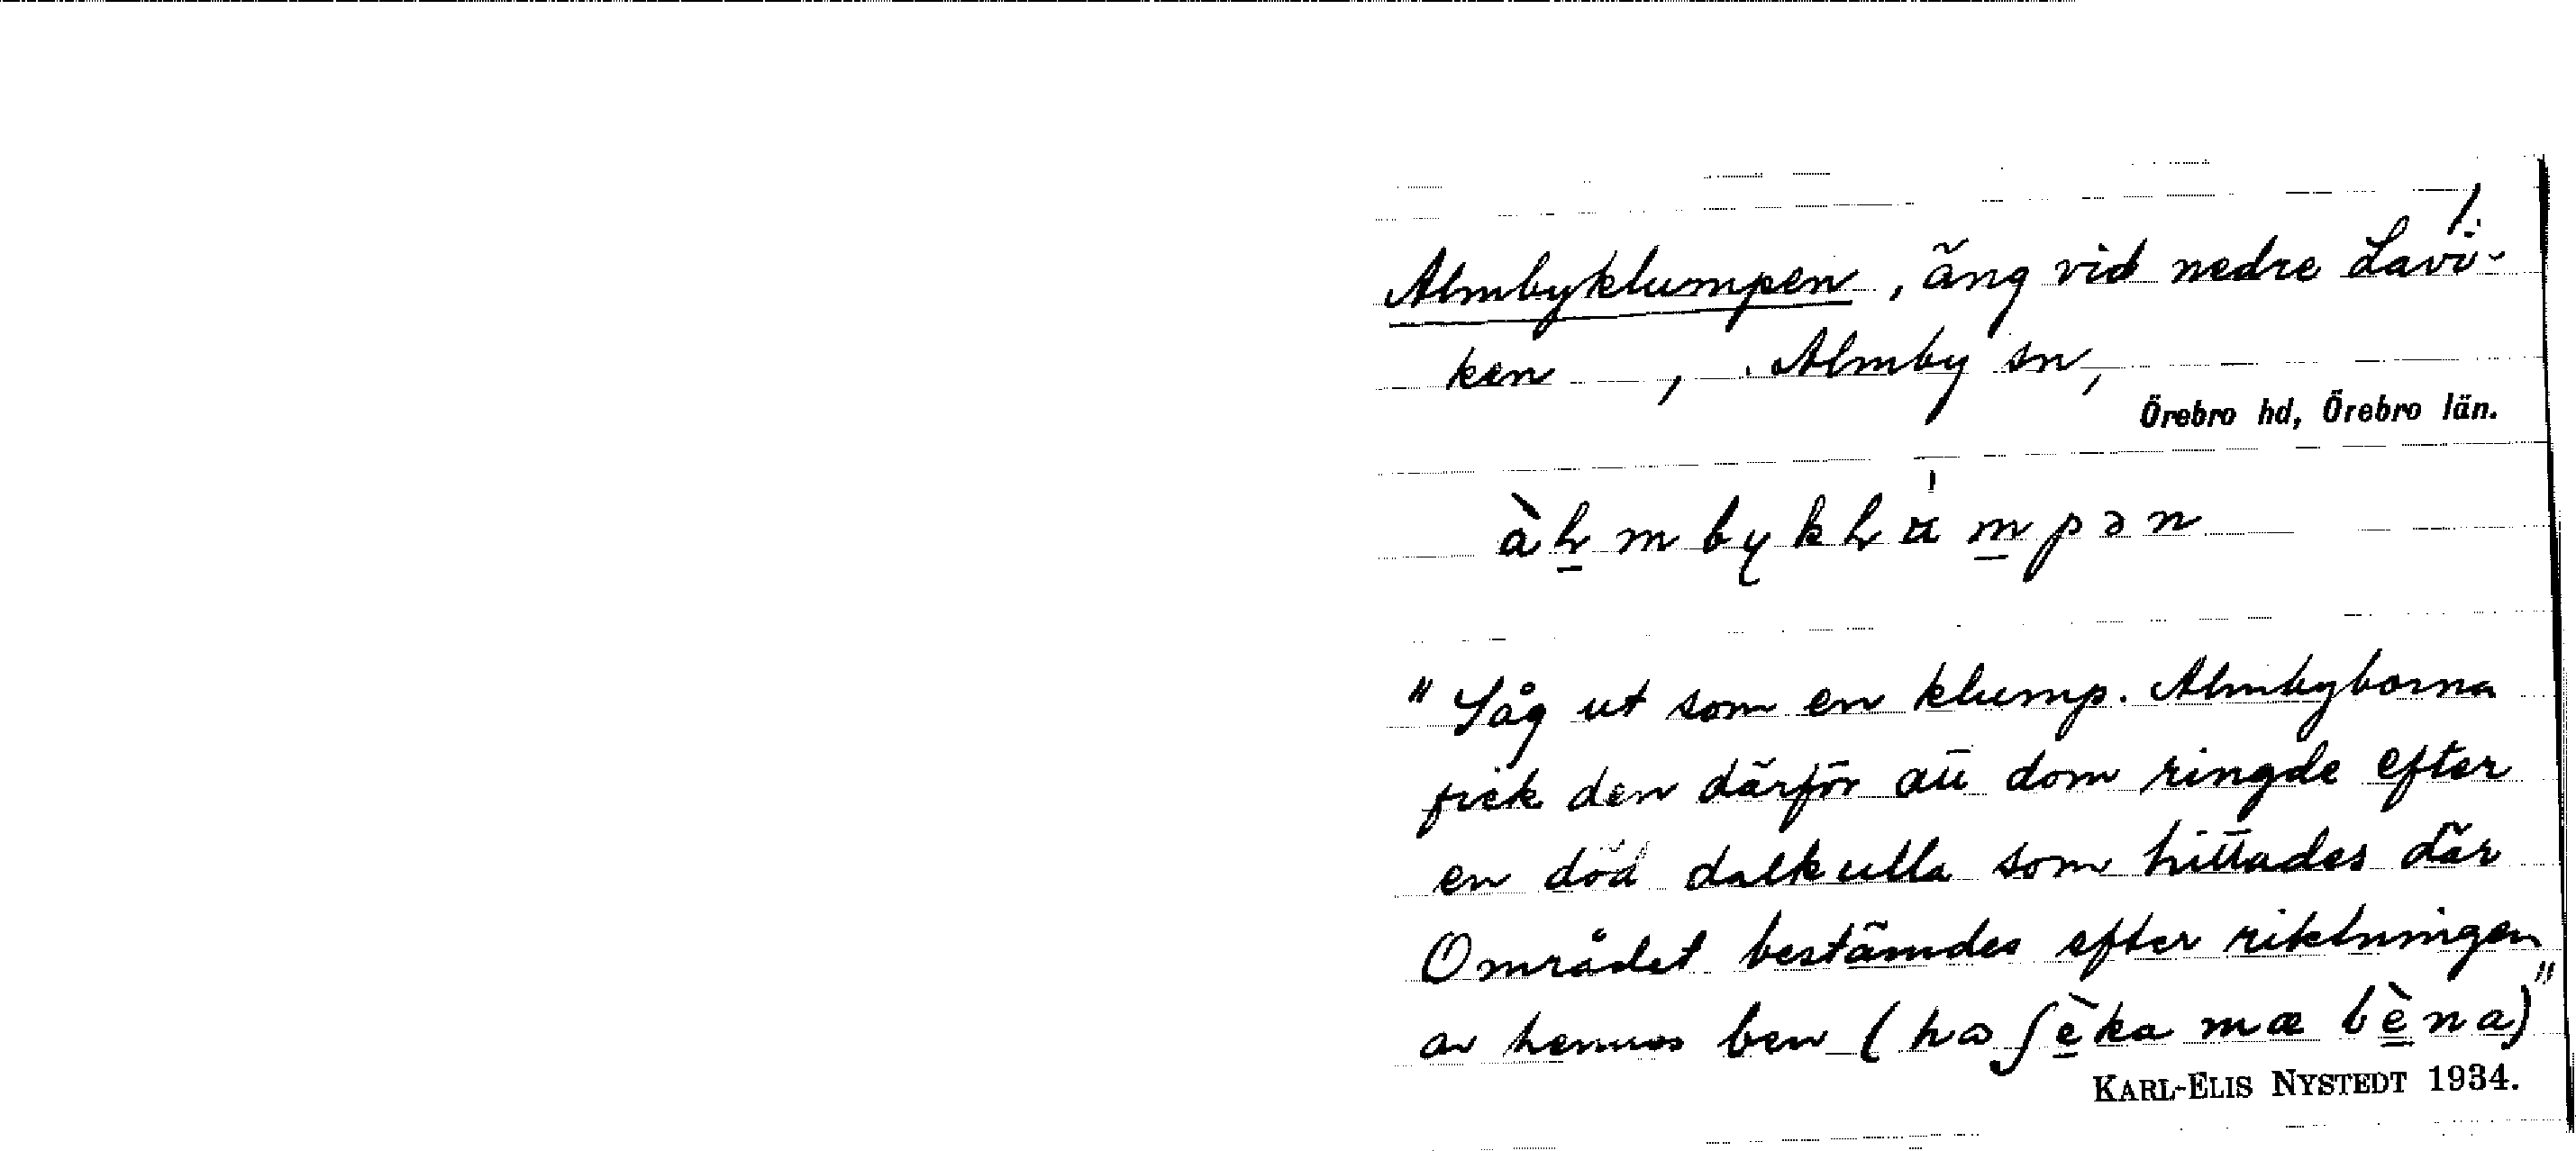 1.
Almbyklumpen, äng vid nedre Lavi-
ken, Almby sn,
Örebro hd, Örebro län.
"Såg ut som en klump. Almbyborna
fick den därför att dom ringde efter
en död dalkulla som hittades där
Området bestämdes efter riktningen
av hennes ben (
mæ bèna)"
KARL-ELIS NYSTEDT 1934.